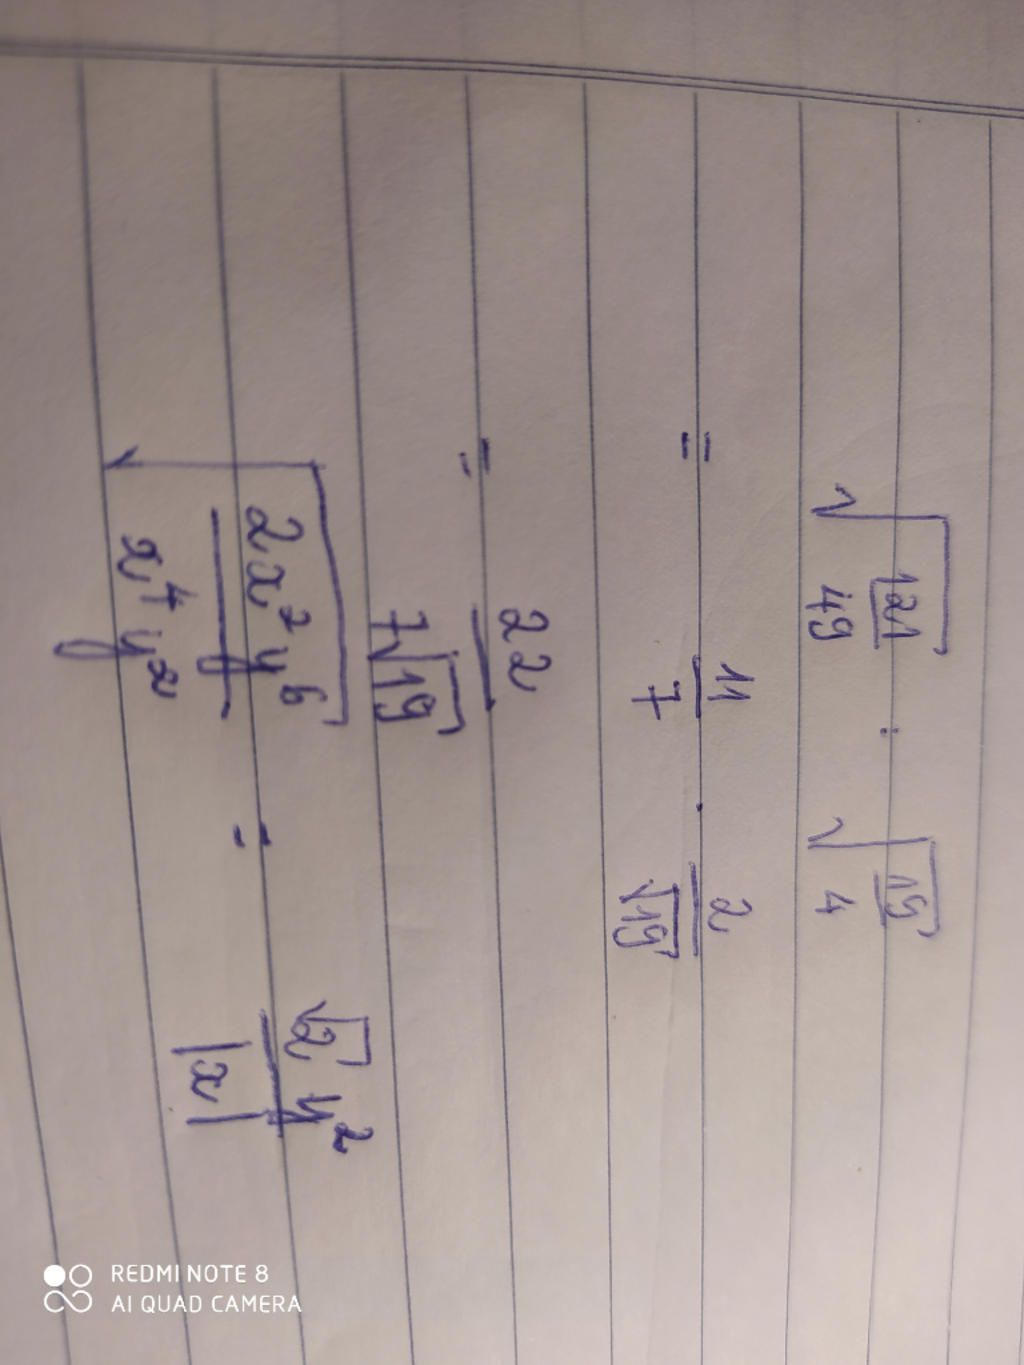 √(121/49) : √(19/4)
= 11/7 · 2/√19
= 22/(7√19)
√(2x²y⁶/(x⁴y²)) = √2 y²/|x|
REDMI NOTE 8
AI QUAD CAMERA